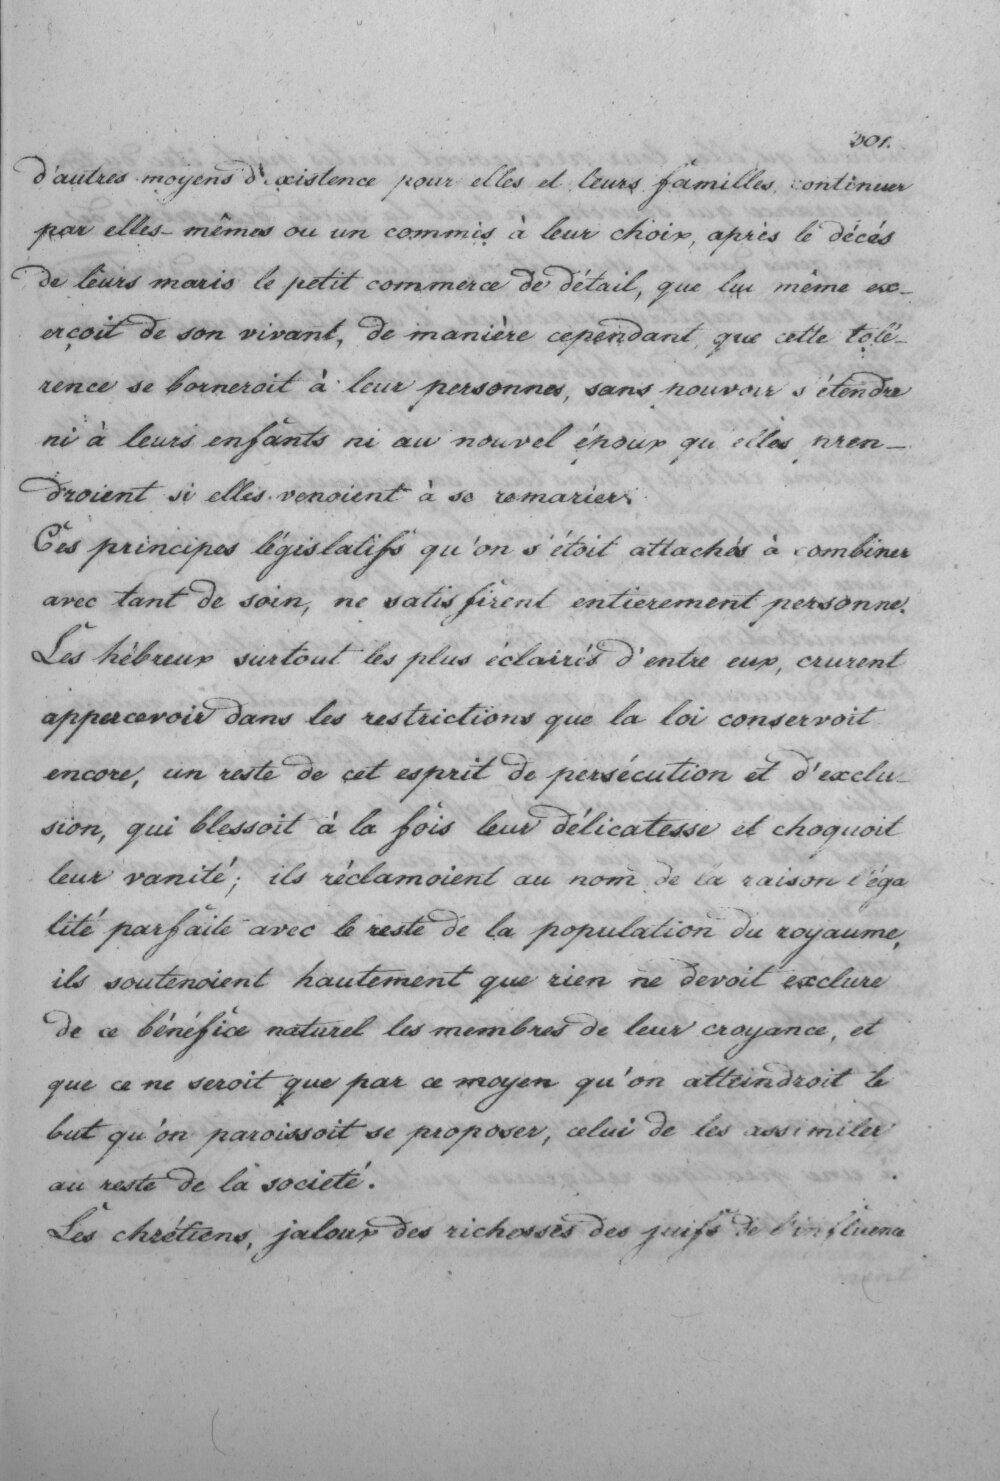 301.
d'autres moyens d'existence pour elles et leurs familles, continuer
par elles-mêmes ou un commis à leur choix, après le décés
de leurs maris le petit commerce de détail, que lui même ex-
erçoit de son vivant, de manière cependant que cette tolé-
rence se borneroit à leur personnes, sans pouvoir s'étendre
ni à leurs enfants ni au nouvel époux qu'elles pren-
droient si elles venoient à se remarier.
Ces principes législatifs qu'on s'étoit attachés à combiner
avec tant de soin, ne satisfirent entierement personne.
Les hébreux surtout les plus éclairés d'entre eux, crurent
appercevoir dans les restrictions que la loi conservoit
encore, un reste de cet esprit de persécution et d'exclu-
sion, qui blessoit à la fois leur délicatesse et choquoit
leur vanité; ils réclamoient au nom de la raison l'éga
lité parfaite avec le reste de la population du royaume,
ils soutenoient hautement que rien ne devoit exclure
de ce bénéfice naturel les membres de leur croyance, et
que ce ne seroit que par ce moyen qu'on atteindroit le
but qu'on paroissoit se proposer, celui de les assimiler
au reste de la société.
Les chrétiens, jaloux des richesses des juifs de l'influence